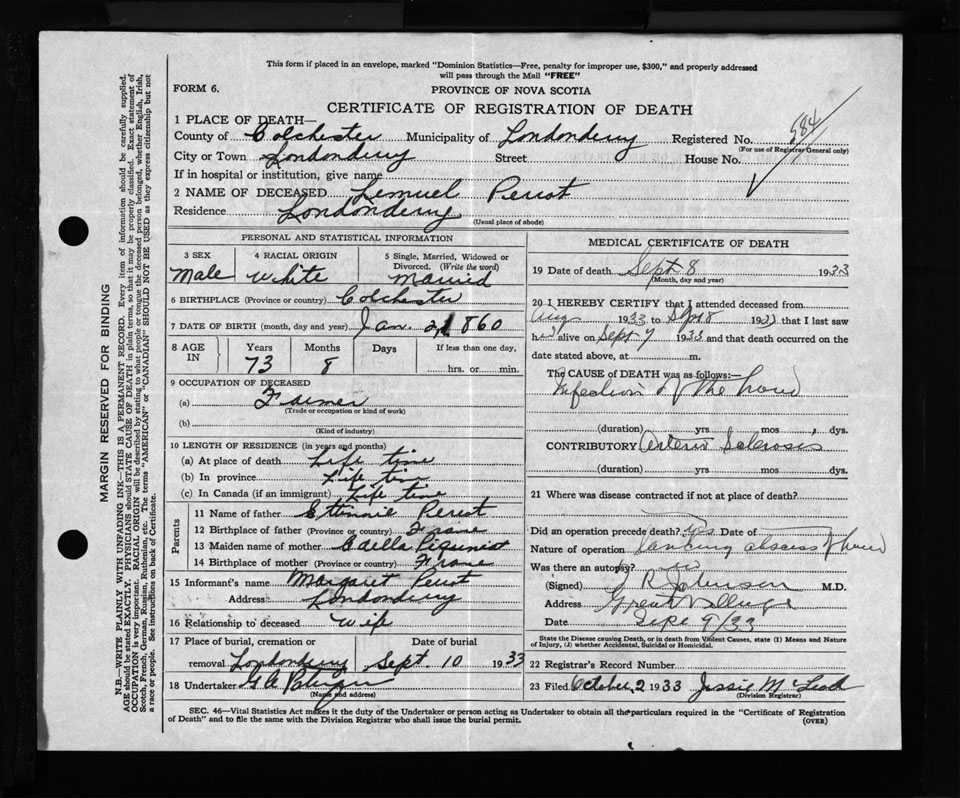 This form if placed in an envelope, marked "Dominion Statistics—Free, penalty for improper use, $300," and properly addressed
will pass through the Mail "FREE"
FORM 6.
PROVINCE OF NOVA SCOTIA
CERTIFICATE OF REGISTRATION OF DEATH
1 PLACE OF DEATH—
County of Colchester Municipality of Londonderry Registered No. 984
(For use of Registrar General only)
City or Town Londonderry Street House No.
If in hospital or institution, give name
2 NAME OF DECEASED Lemuel Perrot
Residence Londonderry
(Usual place of abode)
PERSONAL AND STATISTICAL INFORMATION
3 SEX 4 RACIAL ORIGIN 5 Single, Married, Widowed or Divorced. (Write the word)
Male White Married
6 BIRTHPLACE (Province or country) Colchester
7 DATE OF BIRTH (month, day and year) Jan. 2, 1860
8 AGE IN Years Months Days If less than one day,
73 8 hrs. or min.
9 OCCUPATION OF DECEASED
(a) Farmer
(Trade or occupation or kind of work)
(b)
(Kind of industry)
10 LENGTH OF RESIDENCE (in years and months)
(a) At place of death Life time
(b) In province Life tim
(c) In Canada (if an immigrant) Life time
Parents
11 Name of father Ettinnie Perrot
12 Birthplace of father (Province or country) Frane
13 Maiden name of mother Adella
14 Birthplace of mother (Province or country) Frane
15 Informant's name Margaret Perrot
Address Londonderry
16 Relationship to deceased wife
17 Place of burial, cremation or removal Londonderry
Date of burial Sept. 10 1933
18 Undertaker G A
(Name and address)
MEDICAL CERTIFICATE OF DEATH
19 Date of death Sept 8 1933
(Month, day and year)
20 I HEREBY CERTIFY that I attended deceased from
Aug 1933 to Sept 8 1933 that I last saw
him alive on Sept 7 1933 and that death occurred on the
date stated above, at m.
The CAUSE OF DEATH was as follows:—
Infection of the hand
(duration) yrs mos. dys.
CONTRIBUTORY Arterio Sclerosis
(duration) yrs. mos. dys.
21 Where was disease contracted if not at place of death?
Did an operation precede death? Yes Date of
Nature of operation Lancing abscess of hand
Was there an autopsy? no
(Signed) J R Johnson M.D.
Address Great Village
Date Sept 9/33
State the Disease causing Death, or in death from Violent Causes, state (1) Means and Nature
of Injury, (2) whether Accidental, Suicidal or Homicidal.
22 Registrar's Record Number
23 Filed October 2 1933 Jessie McLeod
(Division Registrar)
SEC. 46—Vital Statistics Act makes it the duty of the Undertaker or person acting as Undertaker to obtain all the particulars required in the "Certificate of Registration
of Death" and to file the same with the Division Registrar who shall issue the burial permit.
(OVER)
MARGIN RESERVED FOR BINDING
N.B.—WRITE PLAINLY WITH UNFADING INK—THIS IS A PERMANENT RECORD. Every item of information should be carefully supplied.
AGE should be stated EXACTLY. PHYSICIANS should STATE CAUSE OF DEATH in plain terms, so that it may be properly classified. Exact statement of
OCCUPATION is very important. RACIAL ORIGIN will be described by stating to what people or tongue the deceased person belonged, whether English, Irish,
Scotch, French, German, Russian, Ruthenian, etc. The terms "AMERICAN" or "CANADIAN" SHOULD NOT BE USED as they express citizenship but not
a race or people. See instructions on back of Certificate.